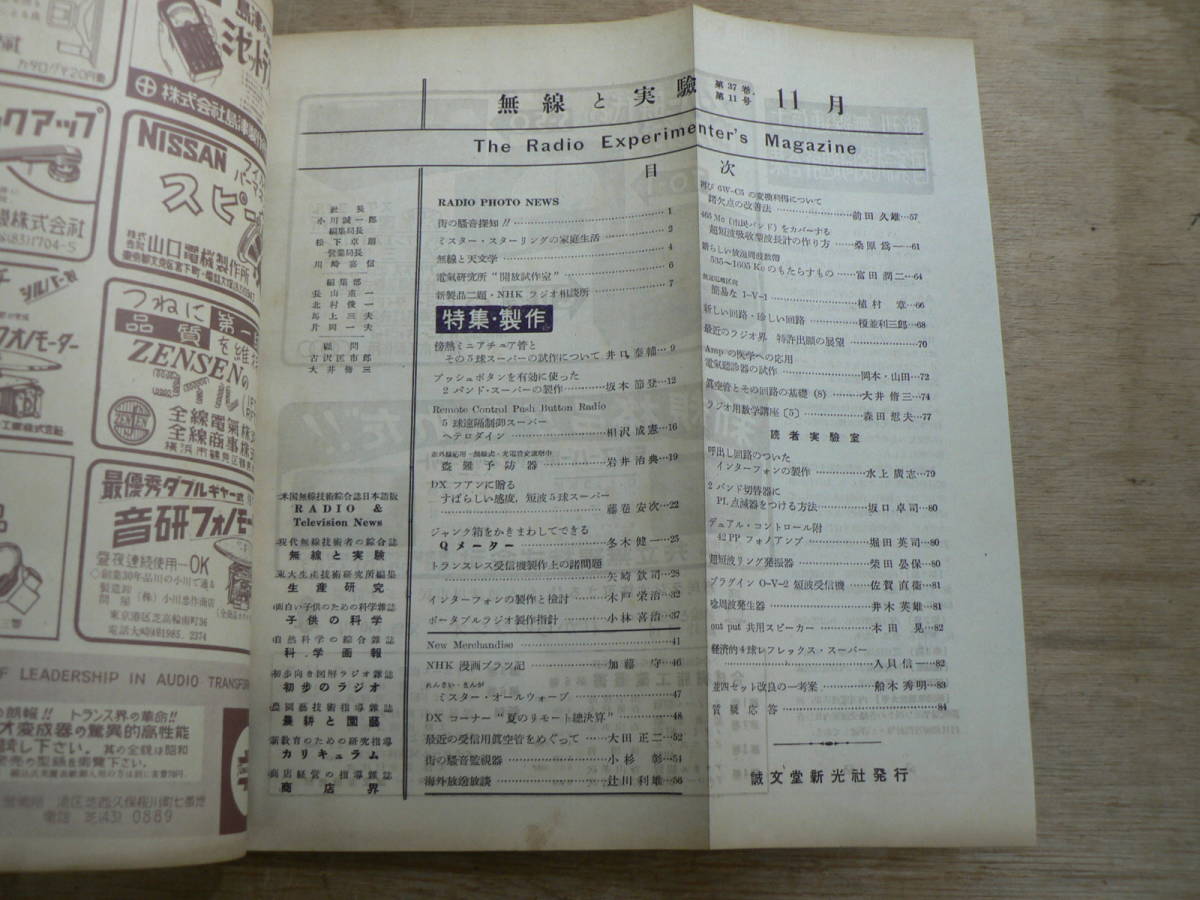 無線と実験 第37巻. 第11号 11月
The Radio Experimenter's Magazine
目 次
社長
小川誠一郎
編集局長
松下卓朗
営業局長
川崎嘉信
編集部
長山重一
北村俊一
馬上三夫
片岡一夫
顧問
古沢匡市郎
大井脩三
米国無線技術綜合誌日本語版
RADIO &
Television News
現代無線技術者の綜合誌
無線と実験
東大生産技術研究所編集
生産研究
面白い子供のための科学雑誌
子供の科学
自然科学の綜合雑誌
科学画報
初歩向き図解ラジオ雑誌
初歩のラジオ
農園藝技術指導雑誌
農耕と園藝
新教育のための研究指導
カリキュラム
商店経営の指導雑誌
商店界
RADIO PHOTO NEWS
街の騒音探知!! 1
ミスター・スターリングの家庭生活 2
無線と天文学 4
電氣研究所“開放試作室” 6
新製品二題・NHK ラジオ相談所 7
特集・製作
傍熱ミニアチュア管と
その5球スーパーの試作について 井口泰輔…9
プッシュボタンを有効に使った
2バンド・スーパーの製作 坂本節登…12
Remote Control Push Button Radio
5球遠隔制御スーパー
ヘテロダイン 相沢成憲…16
盗難予防器 岩井治典…19
DX フアンに贈る
すばらしい感度，短波5球スーパー
藤巻安次…22
ジャンク箱をかきまわしてできる
Qメーター 冬木健一…25
トランスレス受信機製作上の諸問題
矢崎欽司…28
インターフォンの製作と検討 木戸栄治…32
ポータブルラジオ製作指針 小林喜治…37
New Merchandise 41
NHK 漫画プラン記 加藤守…46
れんさい・まんが
ミスター・オールウェーブ 47
DX コーナー“夏のリモート總決算” 48
最近の受信用眞空管をめぐって 大田正二…52
街の騒音監視器 小杉彰…54
海外放送放談 辻川利雄…56
再び 6W-C5 の変換利得について
諸欠点の改善法 前田久雄…57
465 Mc (市民バンド) をカバーする
超短波吸収型波長計の作り方 桑原爲一…61
晴らしい放送周波数帶
535〜1605 Kc のもたらすもの 富田潤二…64
簡易な 1-V-1 植村章…66
新しい回路・珍しい回路 榎並利三郎…68
最近のラジオ界 特許出願の展望 70
Amp の医学への応用
電氣聴診器の試作 岡本・山田…72
眞空管とその回路の基礎 (8) 大井脩三…74
ラジオ用数学講座〔5〕 森田愿夫…77
読者実験室
呼出し回路のついた
インターフォンの製作 水上廣志…79
2バンド切替器に
PL点滅器をつける方法 坂口卓司…80
デュアル・コントロール附
42 PP フォノアンプ 堀田英司…80
超短波リング発振器 柴田晏保…80
プラグイン O-V-2 短波受信機 佐賀直衛…81
唸周波発生器 井木英雄…81
out put 共用スピーカー 本田晃…82
経済的4球レフレックス・スーパー
人見信一…82
並四セット改良の一考案 船木秀明…83
質疑応答 84
誠文堂新光社発行
カタログ〒20円
株式会社島津製
ックアップ
機株式会社
(83)1704-5
NISSAN
スピー
株式会社 山口電機製作所
シルバー
フォノモーター
つねに第一
品質を維
ZENSENの
コイル
全線電氣株
全線商事株
横浜市鶴見区
ZENSEN
最優秀ダブルギヤー式
音研フォノモー
昼夜連続使用—OK
創業30年品川の小川で通る
製造卸 問屋 (株) 小川忠作商店
東京港区芝高輪南町36
電話大崎(49)1985. 2374
F LEADERSHIP IN AUDIO TRANSFOR
の朗報!! トランス界の革命!!
オ変成器の驚異的高性能
試し下さい。
港区芝西久保桜川町七番地
電話 芝(43) 0889